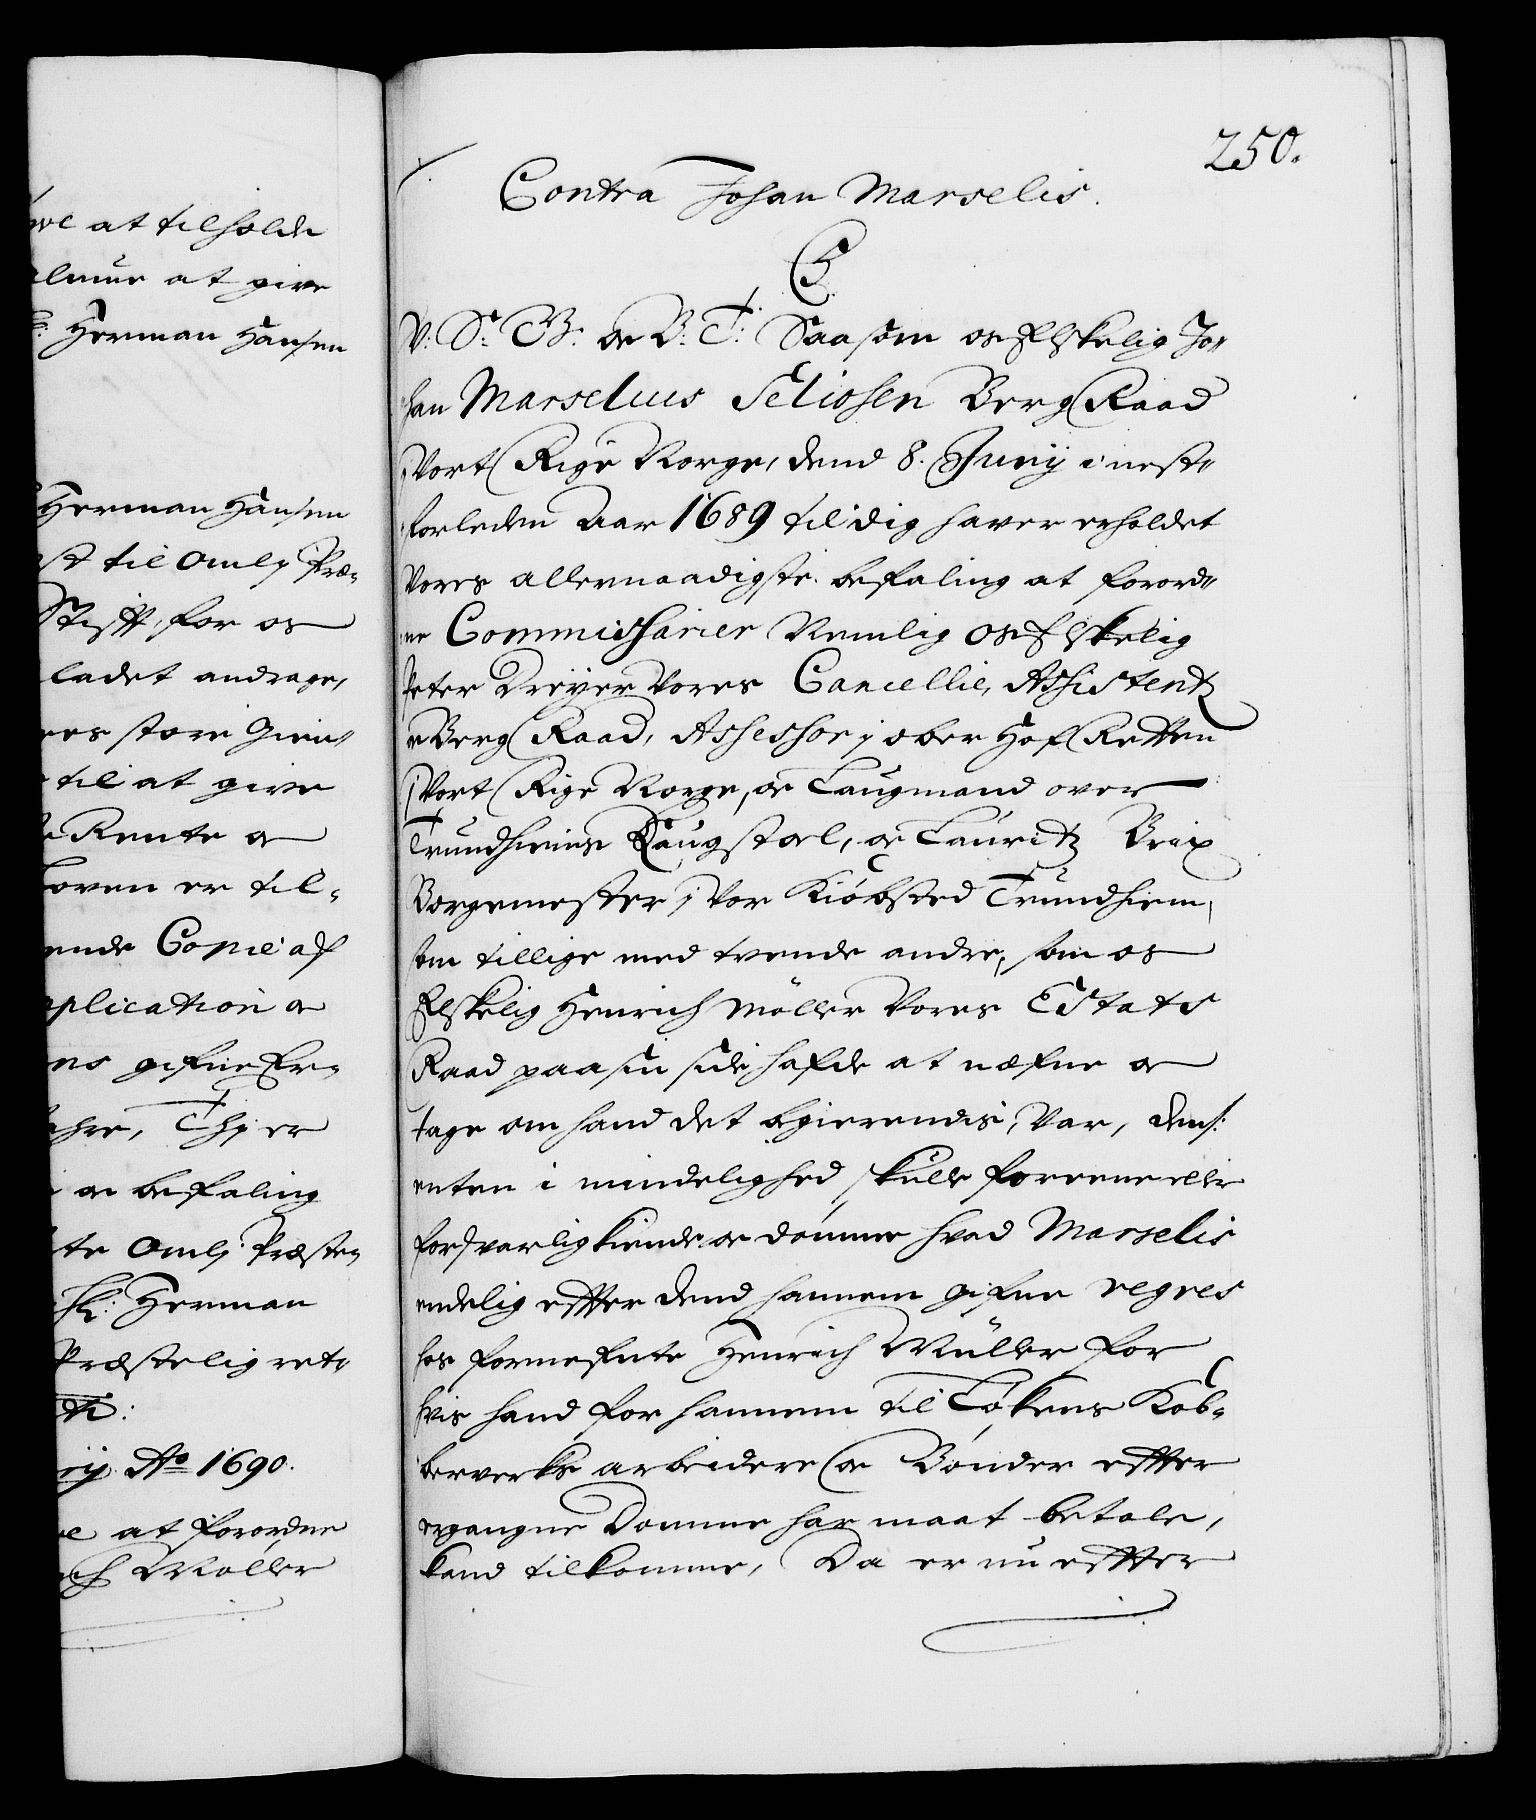 ve at tilholde
at give
Herman Hansen
Herman Hansen
til Omlj Præ-
Stifft, for os
ladet andrage,
store
til at give
Rente oc
loven er til-
ende Copie af
plication oc
gifne Er-
Thj er
oc befaling
te Omlj Præste-
Hr: Herman
Præstelig ret-
rij Ao 1690.
at forordne
Møller
250.
Contra Johan Marselis.
C5.
V: S: G: oc V: T: Saasom os Elskelig Jo-
han Marselius Seliosen Berg Raad
j Vort Rige Norge, dend 8. Junij i nest-
forleden Aar 1689 til dig hafver erholdet
Vores allernaadigste befaling at forord-
ne Commissarier Nemlig Os Elskelig
Peter Dreyer Vores Cancellie, Assistentz
oc Berg Raad, Assessor j ober Hof Retten
j Vort Rige Norge, oc Laugmand over
Trundhiems Laugstoel, oc Lauritz Brix
Borgemester j Vor Kiøbsted Trundhiem,
som tillige med tvende andre, som os
Elskelig Henrich Møller Vores Estats
Raad paa sin side hafde at næfne oc
tage om hand det begierendis, Var, dems:
enten i mindelighed skulle foreene eller
forsvarlig kiende oc dømme hvad Marselis
endelig effter dend hannem gifne regres
hos formelente Henrich Müller for
hvis hand for hannem til Løkens Kob-
berverks arbeidere oc Bønder effter
ergangne Domme har maat betale,
kand tilkomme, Da er nu effter